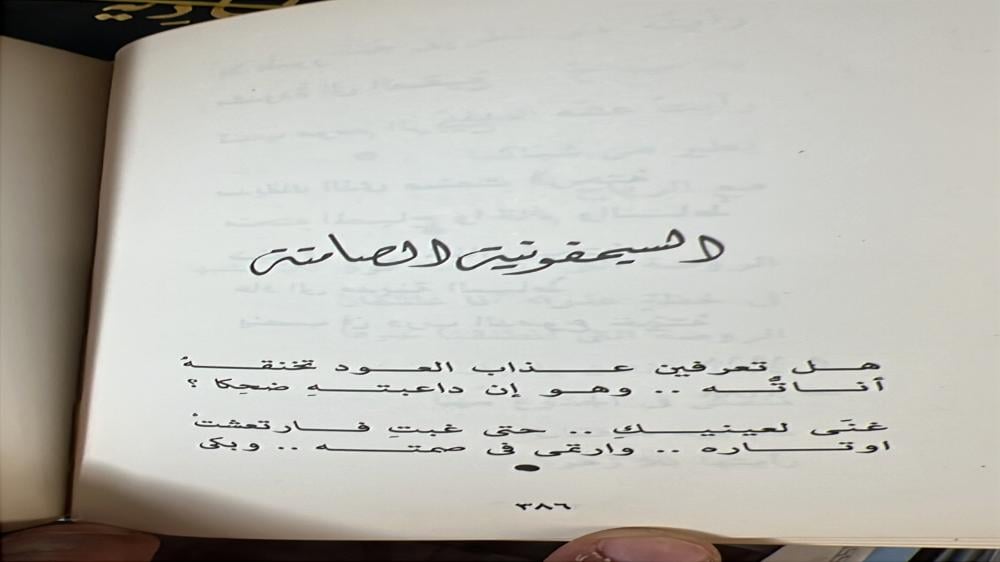 السيمفونية الصامتة
هل تعرفين عذاب العود تخنقهُ
أناتُه .. وهو إن داعبتهِ ضحِكا ؟
غنَى لعينيكِ .. حتى غبتِ فارتعشتْ
اوتاره .. وارتمى فى صمته .. وبكى
٣٨٦